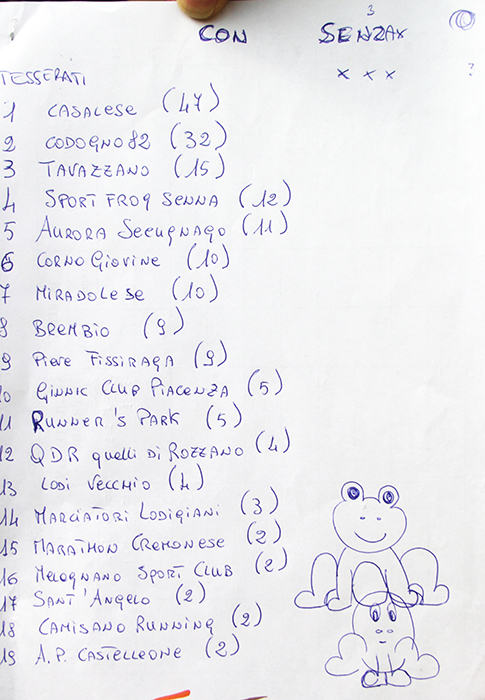 3
CON SENZA x
x x x ?
TESSERATI
1 CASALESE (47)
2 CODOGNO 82 (32)
3 TAVAZZANO (15)
4 SPORT FROG SENNA (12)
5 AURORA SECUGNAGO (11)
6 CORNO GIOVINE (10)
7 MIRADOLESE (10)
8 BREMBIO (9)
9 PIEVE FISSIRAGA (9)
10 GINNIC CLUB PIACENZA (5)
11 RUNNER'S PARK (5)
12 QDR quelli Di ROZZANO (4)
13 LODI VECCHIO (4)
14 MARCIATORI LODIGIANI (3)
15 MARATHON CREMONESE (2)
16 MELOGNANO SPORT CLUB (2)
17 SANT'ANGELO (2)
18 CAMISANO RUNNING (2)
19 A.P. CASTELLEONE (2)